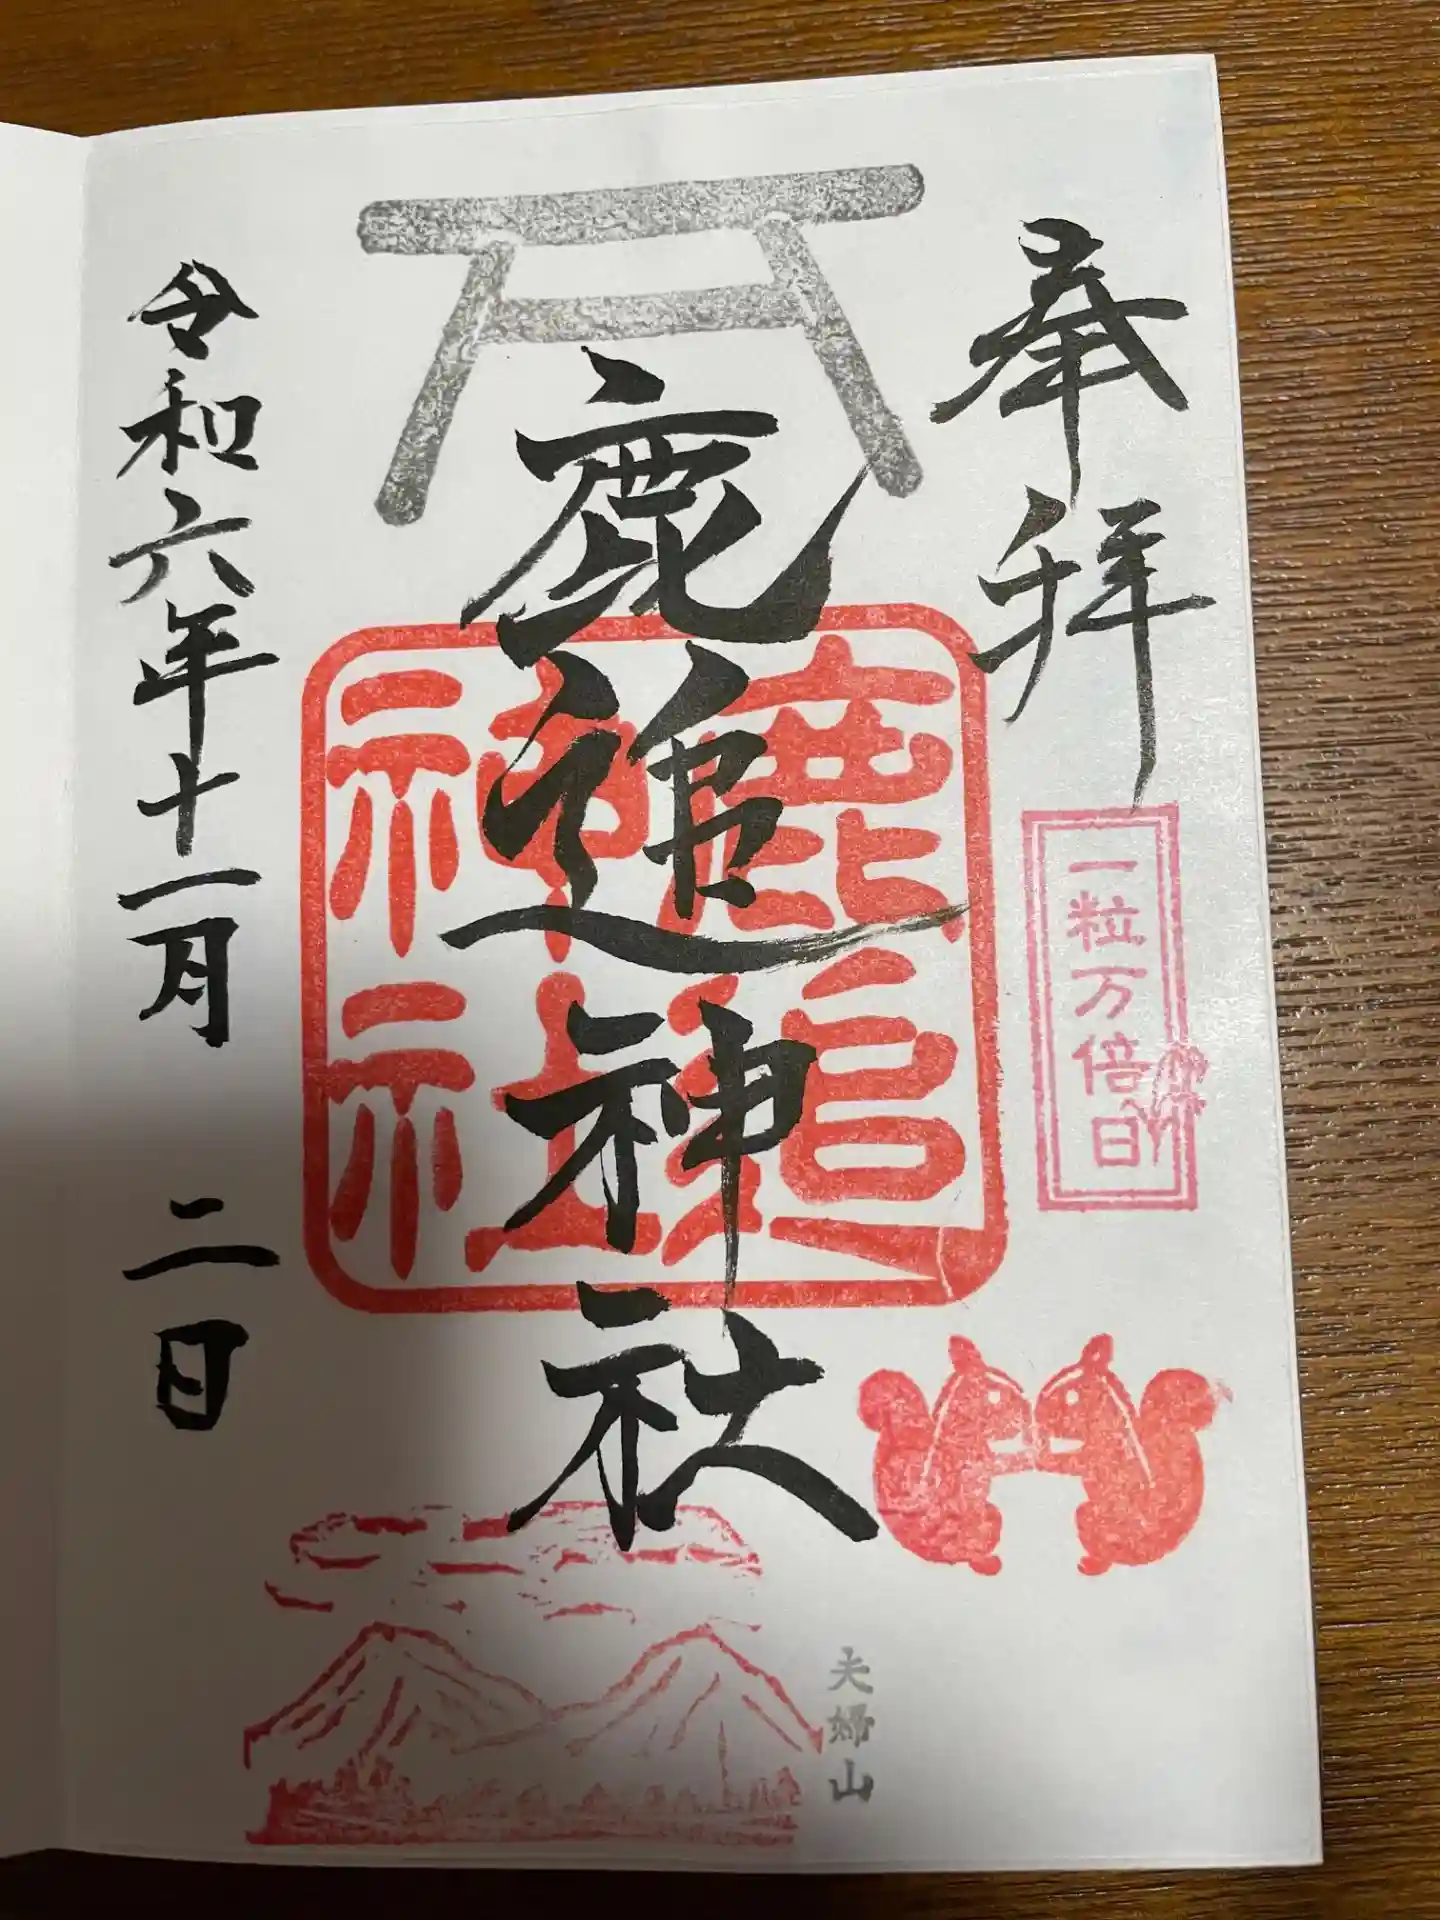 奉拝
一粒万倍日
鹿追神社
鹿追
神社
夫婦山
令和六年十一月二日